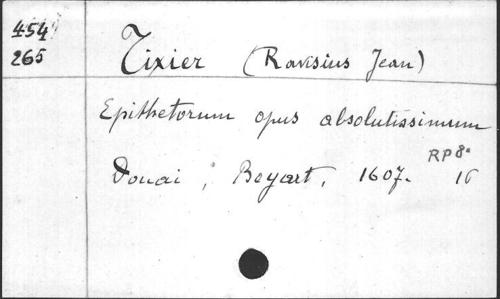 454
265
Tixier (Ravisius Jean)
Epithetorum opus absolutissimum
Douai, Bogart, 1607. RP 8º
16